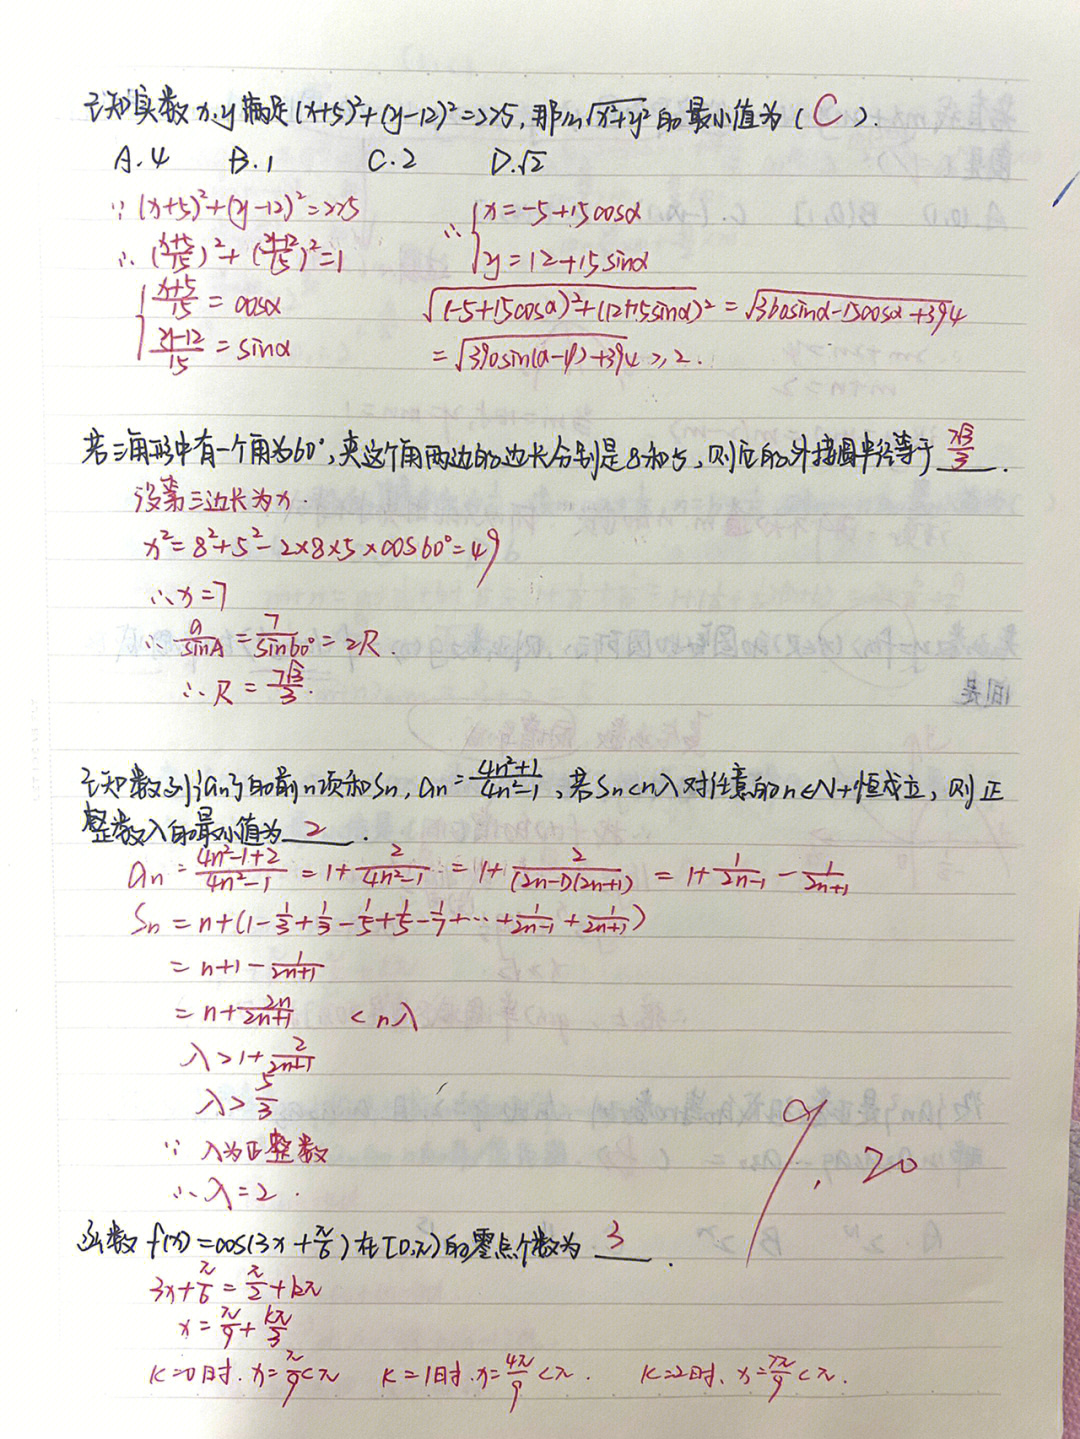 已知实数x,y满足(x+5)²+(y-12)²=225,那么√x²+y²的最小值为(C).
A.4 B.1 C.2 D.√2
∵(x+5)²+(y-12)²=225
∴(x+5/15)²+(y-12/15)²=1
{x+5/15=cosα
y-12/15=sinα
∴{x=-5+15cosα
y=12+15sinα
√(-5+15cosα)²+(12+15sinα)²=√360sinα-150cosα+394
=√390sin(α-φ)+394≥2.
若三角形中有一个角为60°,夹这个角两边的边长分别是8和5,则它的外接圆半径等于7√3/3.
设第三边长为x.
x²=8²+5²-2×8×5×cos60°=49
∴x=7
∴a/sinA=7/sin60°=2R
∴R=7√3/3.
已知数列{an}的前n项和Sn,an=4n²+1/4n²-1,若Sn<nλ对任意的n∈N+恒成立,则正
整数λ的最小值为2.
an=4n²-1+2/4n²-1=1+2/4n²-1=1+2/(2n-1)(2n+1)=1+1/2n-1-1/2n+1
Sn=n+(1-1/3+1/3-1/5+1/5-1/7+…+1/2n-1+1/2n+1)
=n+1-1/2n+1
=n+2n/2n+1 <nλ
λ>1+2/2n+1
λ>5/3
∵λ为正整数
∴λ=2.
9.20
函数f(x)=cos(3x+π/6)在[0,π]的零点个数为3.
3x+π/6=π/2+kπ
x=π/9+kπ/3
k=0时.x=π/9<π k=1时.x=4π/9<π. k=2时.x=7π/9<π.